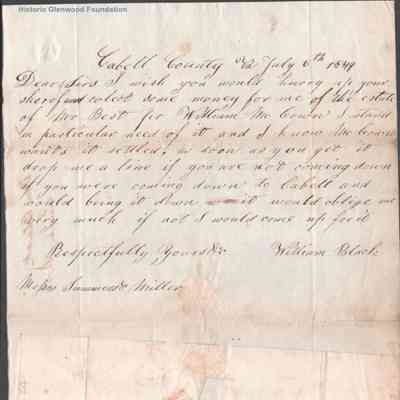 Historic Glenwood Foundation
Cabell County Va July 6th 1849
Dear Sirs I wish you would hurry up your
and colect some money for me of the estate
of Mr Best for William Mc Cown I stand
in particular need of it and I know Mc Cown
wants it settled, as soon as you get it
drop me a line if you are not coming down
if you were coming down to Cabell and
would bring it down it would oblige me
very much if not I would come up for it
Respectfully Yours &c William Black
Messrs Summers & Miller